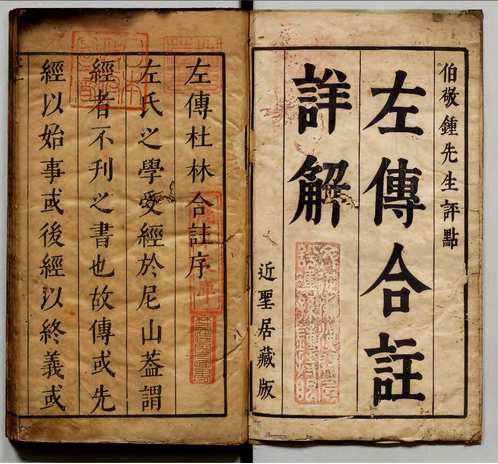 伯敬鍾先生評點
左傳合註
詳解
近聖居藏版
左傳杜林合註序
左氏之學受經於尼山葢謂
經者不刊之書也故傳或先
經以始事或後經以終義或